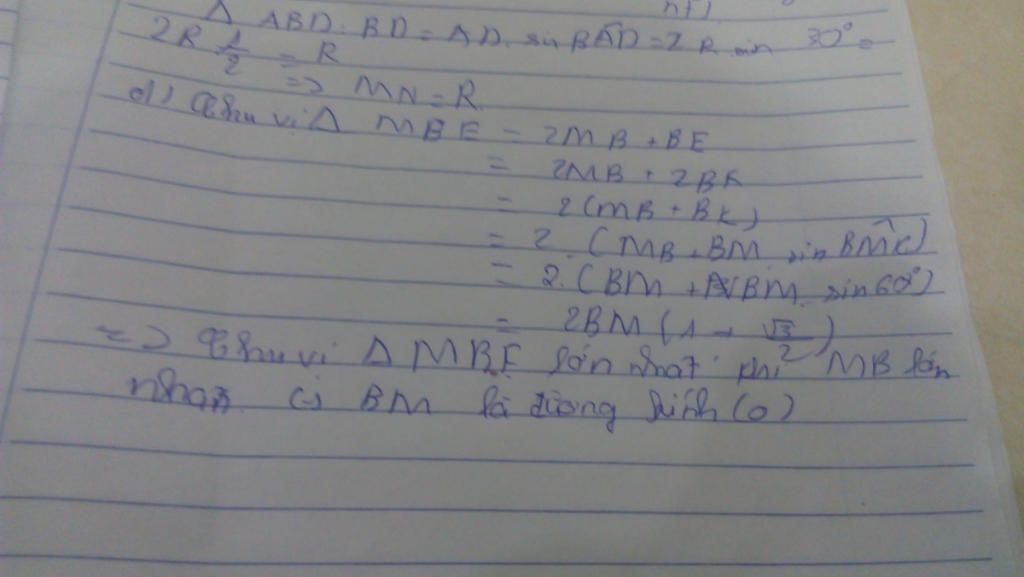 Δ ABD: BD = AD. sin BAD = 2R sin 30° =
2R 1/2 = R
=> MN = R
d) Chu vi Δ MBE = 2MB + BE
= 2MB + 2BK
= 2(MB + BK)
= 2. (MB + BM sin BMK)
= 2. (BM + BM sin60°)
= 2BM (1 + √3/2)
=> Chu vi Δ MBE lớn nhất khi MB lớn
nhất (=) BM là đường kính (O)